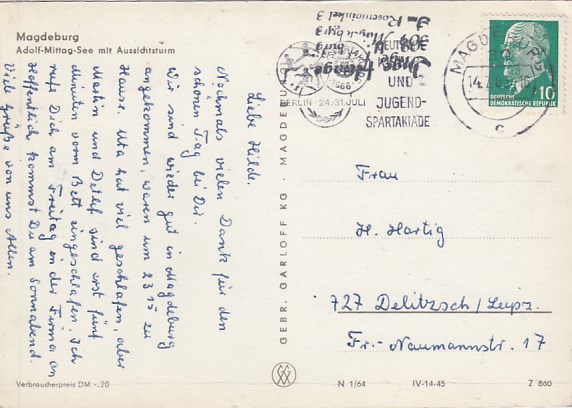 Magdeburg
Adolf-Mittag-See mit Aussichtsturm
Liebe Hilde.
Nochmals vielen Dank für den
schönen Tag bei Dir.
Wir sind wieder gut in Magdeburg
angekommen, waren um 23 15 zu
Hause. Uta hat viel geschlafen, aber
Martin und Detlef sind erst fünf
Minuten vorm Bett eingeschlafen. Ich
rufe Dich am Freitag in der Firma an
Hoffentlich kommst Du am Sonnabend.
Viele Grüße von uns Allen.
Verbraucherpreis DM -.20
GEBR. GARLOFF KG · MAGDEBURG
1966
BERLIN · 24.-31. JULI
UND
JUGEND-
SPARTAKIADE
MAGDEBURG
c
DEUTSCHE
DEMOKRATISCHE REPUBLIK
10
Frau
H. Hartig
727 Delitzsch/Leipz.
Fr.-Naumannstr. 17
N 1/64
IV-14-45
Z 860